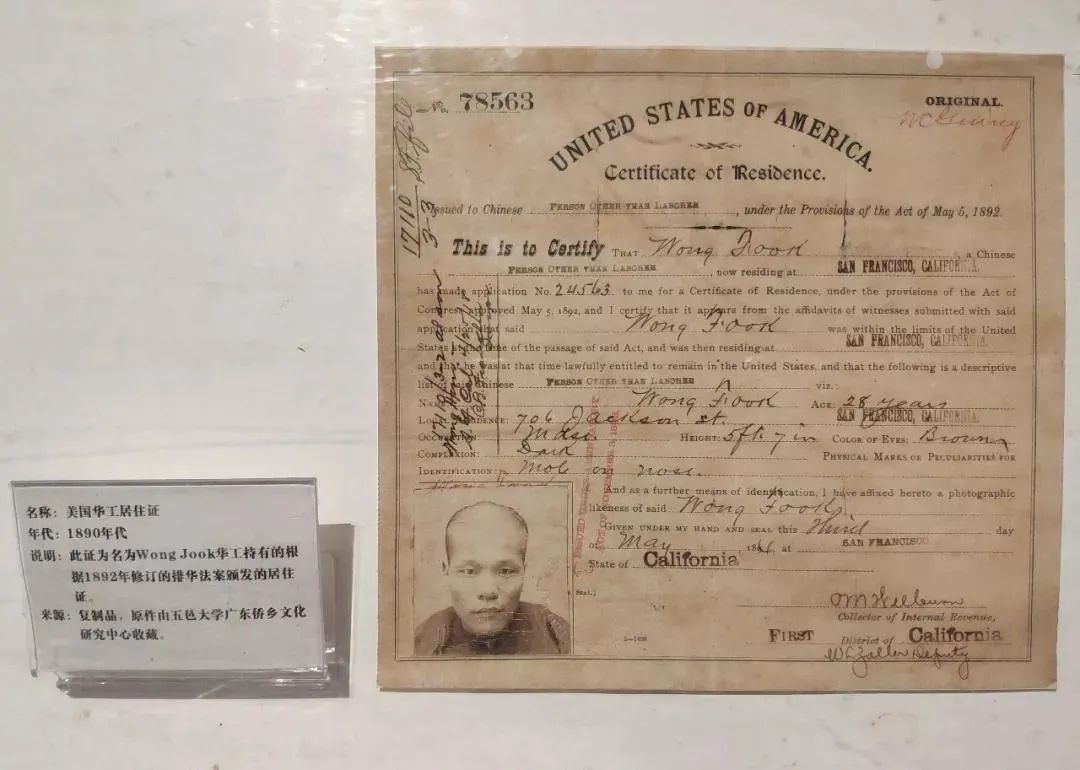 名称：美国华工居住证
年代：1890年代
说明：此证为名为Wong Jook华工持有的根
据1892年修订的排华法案颁发的居住
证。
来源：复制品，原件由五邑大学广东侨乡文化
研究中心收藏。
No. 78563
ORIGINAL.
UNITED STATES OF AMERICA.
Certificate of Residence.
Issued to Chinese PERSON OTHER THAN LABORER, under the Provisions of the Act of May 5, 1892.
This is to Certify THAT Wong Fook, a Chinese
PERSON OTHER THAN LABORER, now residing at SAN FRANCISCO, CALIFORNIA.
has made application No. 24563 to me for a Certificate of Residence, under the provisions of the Act of
Congress approved May 5, 1892, and I certify that it appears from the affidavits of witnesses submitted with said
application that said Wong Fook was within the limits of the United
States at the time of the passage of said Act, and was then residing at SAN FRANCISCO, CALIFORNIA.
and that he was at that time lawfully entitled to remain in the United States, and that the following is a descriptive
list of said Chinese PERSON OTHER THAN LABORER viz.:
NAME: Wong Fook AGE: 28 years
LOCAL RESIDENCE: 706 Jackson st. SAN FRANCISCO, CALIFORNIA.
OCCUPATION: Mdse HEIGHT: 5ft. 7 in COLOR OF EYES: Brown
COMPLEXION: Dark PHYSICAL MARKS OR PECULIARITIES FOR
IDENTIFICATION: Mole on nose.
And as a further means of identification, I have affixed hereto a photographic
likeness of said Wong Fook.
GIVEN UNDER MY HAND AND SEAL this Third day
of May, at SAN FRANCISCO
State of California
Collector of Internal Revenue,
FIRST District of California
Deputy
17110
3-3